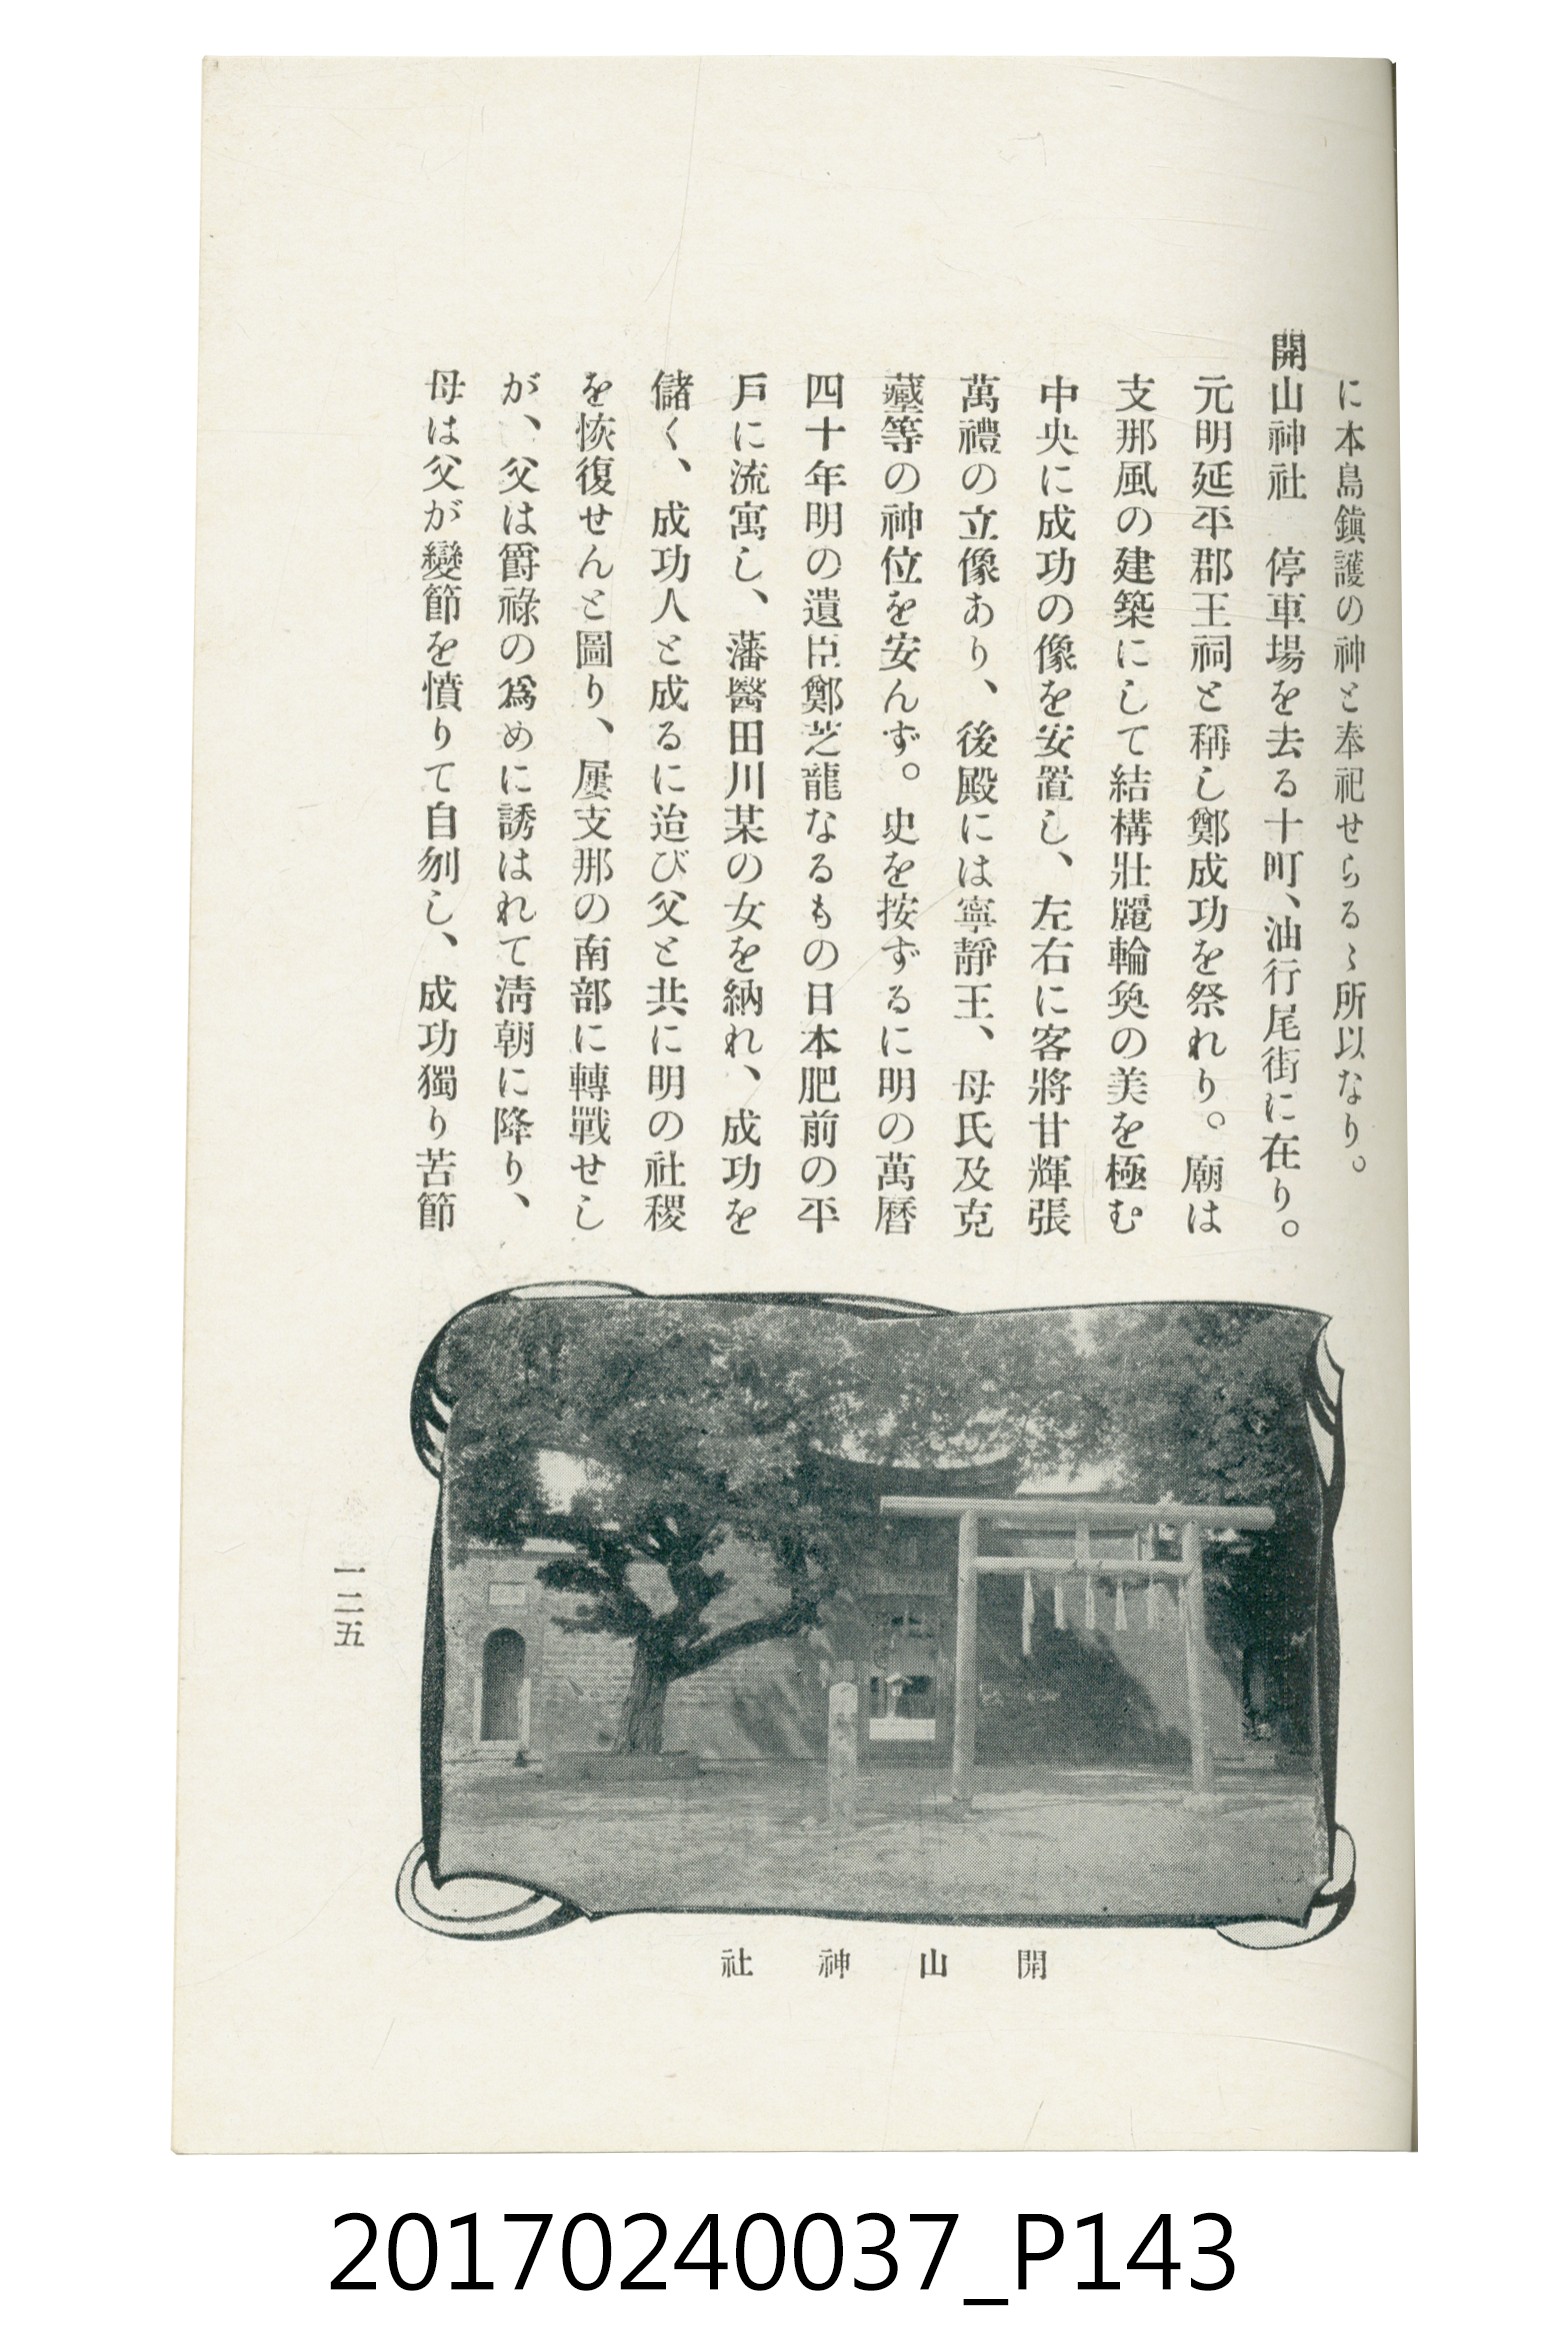 に本島鎭護の神と奉祀せらるゝ所以なり。
開山神社　停車場を去る十町、油行尾街に在り。
元明延平郡王祠と稱し鄭成功を祭れり。廟は
支那風の建築にして結構壯麗輪奐の美を極む
中央に成功の像を安置し、左右に客將甘輝張
萬禮の立像あり、後殿には寧靜王、母氏及克
𡒉等の神位を安んず。史を按ずるに明の萬曆
四十年明の遺臣鄭芝龍なるもの日本肥前の平
戸に流寓し、藩醫田川某の女を納れ、成功を
儲く、成功人と成るに迨び父と共に明の社稷
を恢復せんと圖り、屢支那の南部に轉戰せし
が、父は爵祿の爲めに誘はれて淸朝に降り、
母は父が變節を憤りて自刎し、成功獨り苦節
開山神社
一二五
20170240037_P143